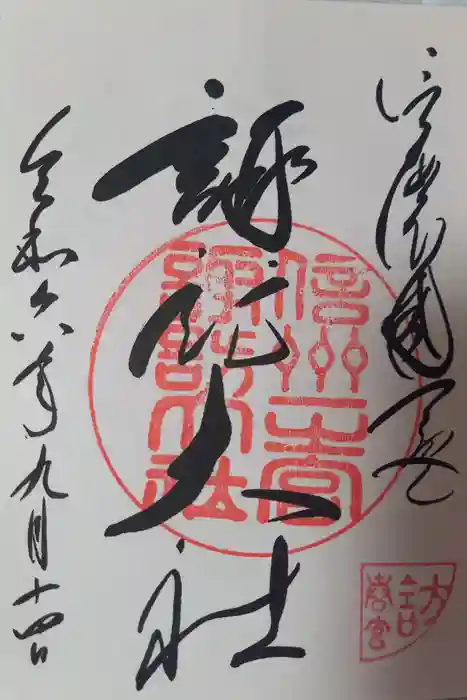 信濃國一之宮
諏訪大社
信州一宮
諏訪大社
諏訪
春宮
令和六年九月十四日